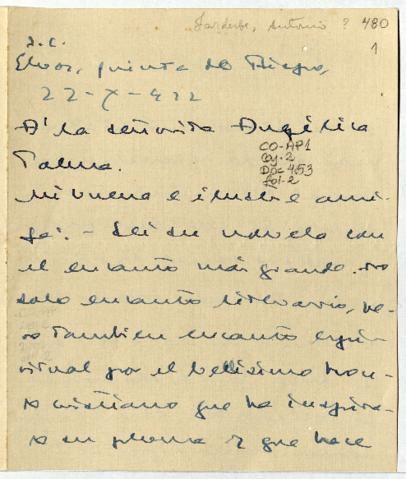 Sardinha, Antonio ? 480
1
J. C.
Elvas, quinta do Bispo,
22-X-922
A' la señorita Angélica
Palma.
CO-AP1
Cj. 2
Doc 453
fol. 2
Mi buena e ilustre ami-
ga: - Leí su novela con
el encanto más grande. No
solo encanto literario, pe-
ro tambien encanto espi-
ritual por el bellisimo
cristiano que ha inspira-
su pluma y que hace